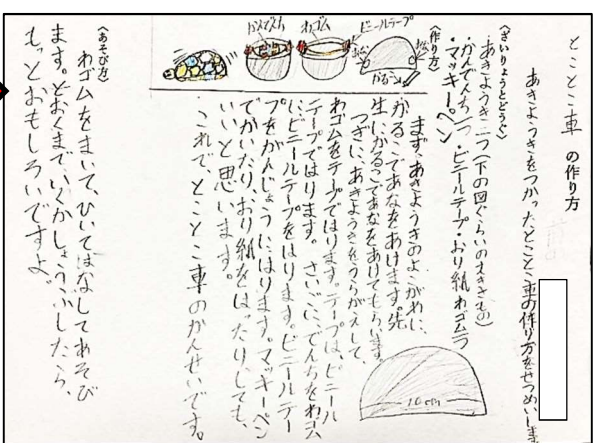 とことこ車の作り方
あきようきをつかったとことこ車の作り方をせつめいしま
〈ざいりょうとどうぐ〉
・あきようき二つ(下の図ぐらいの大きさもの)
・かんでんち一つ・ビニールテープ・おり紙 わゴム二
・マッキーペン
〈作り方〉
まず、あきようきのよこがわに、
かるこであなをあけます。先
生にかるこであなをあけてもらいます。
つぎに、あきようきをうらがえして、
わゴムをテープではります。テープは、ビニール
テープではります。さいごに、でんちをわゴム
にビニールテープをはります。ビニールテー
プをがんじょうにはります。マッキーペン
でかいたり、おり紙をはったりしても、
いいと思います。
これで、とことこ車のかんせいです。
ビニールテープ
わゴム
かるこ
10cm
〈あそび方〉
わゴムをまいて、ひいてはなしてあそび
ます。どおくまで、いくかしょうぶしたら、
もっとおもしろいですよ。